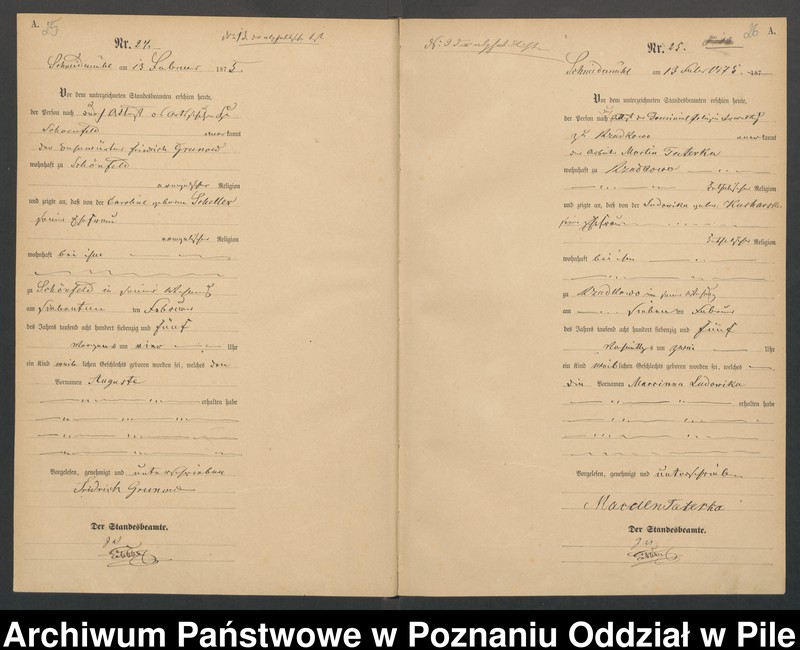 A. 25
Nr. 24.
Schneidemühl am 13 Februar 1875.
Vor dem unterzeichneten Standesbeamten erschien heute,
der Person nach durch Attest
Schoenfeld kannt
Friedrich Grunow
wohnhaft zu Schönfeld
evangelischer Religion
und zeigte an, daß von der Caroline geborene Scheller
seine Ehefrau
evangelischer Religion
wohnhaft bei ihm
zu Schönfeld in seiner Wohnung
am siebenten ten Februar
des Jahres tausend acht hundert siebenzig und fünf
Morgens um vier Uhr
ein Kind weiblichen Geschlechts geboren worden sei, welches den
Vornamen Auguste
erhalten habe
Vorgelesen, genehmigt und unterschrieben
Fridrich Grunow
Der Standesbeamte.
26 A.
Nr. 25.
Schneidemühl am 13 Febr 1875. 187
Vor dem unterzeichneten Standesbeamten erschien heute,
der Person nach
zu Brodkowo kannt
der Arbeiter Martin Taterka
wohnhaft zu Brodkowo
katholischer Religion
und zeigte an, daß von der Ludowika geb.
seine Ehefrau
katholischer Religion
wohnhaft bei ihm
zu Brodkowo in seiner Wohnung
am sieben ten Februar
des Jahres tausend acht hundert siebenzig und fünf
Nachmittags um zwei Uhr
ein Kind weiblichen Geschlechts geboren worden sei, welches
die Vornamen Marcinna Ludowika
erhalten habe
Vorgelesen, genehmigt und unterschrieben
Marcien Taterka
Der Standesbeamte.
Archiwum Państwowe w Poznaniu Oddział w Pile